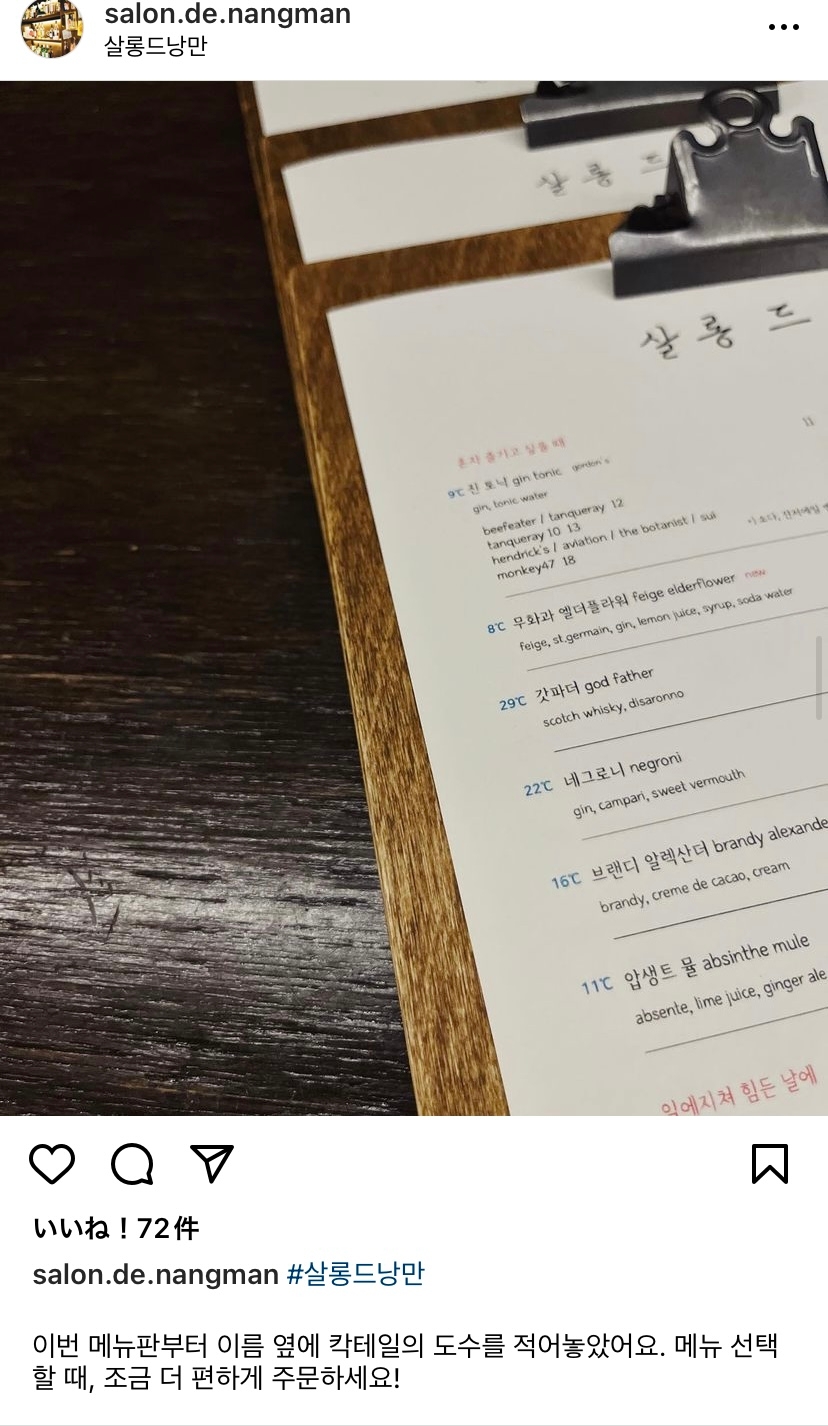 salon.de.nangman
살롱드낭만
살 롱 드
살 롱 드
11
혼자 즐기고 싶을 때
9℃ 진 토닉 gin tonic gordon's
gin, tonic water
beefeater / tanqueray 12
tanqueray 10 13
hendrick's / aviation / the botanist / sui
monkey47 18
8℃ 무화과 엘더플라워 feige elderflower new
feige, st.germain, gin, lemon juice, syrup, soda water
29℃ 갓파더 god father
scotch whisky, disaronno
22℃ 네그로니 negroni
gin, campari, sweet vermouth
16℃ 브랜디 알렉산더 brandy alexande
brandy, creme de cacao, cream
11℃ 압생트 뮬 absinthe mule
absente, lime juice, ginger ale
일에지쳐 힘든 날에
いいね！72件
salon.de.nangman #살롱드낭만
이번 메뉴판부터 이름 옆에 칵테일의 도수를 적어놓았어요. 메뉴 선택
할 때, 조금 더 편하게 주문하세요!